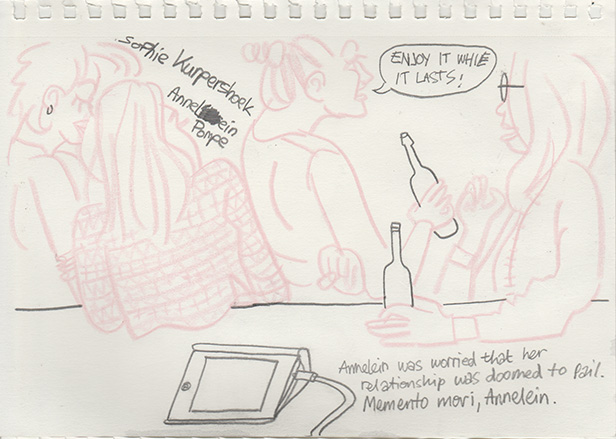 Sophie Kurpershoek
Annelein
Pompe
ENJOY IT WHILE
IT LASTS!
Annelein was worried that her
relationship was doomed to fail.
Memento mori, Annelein.